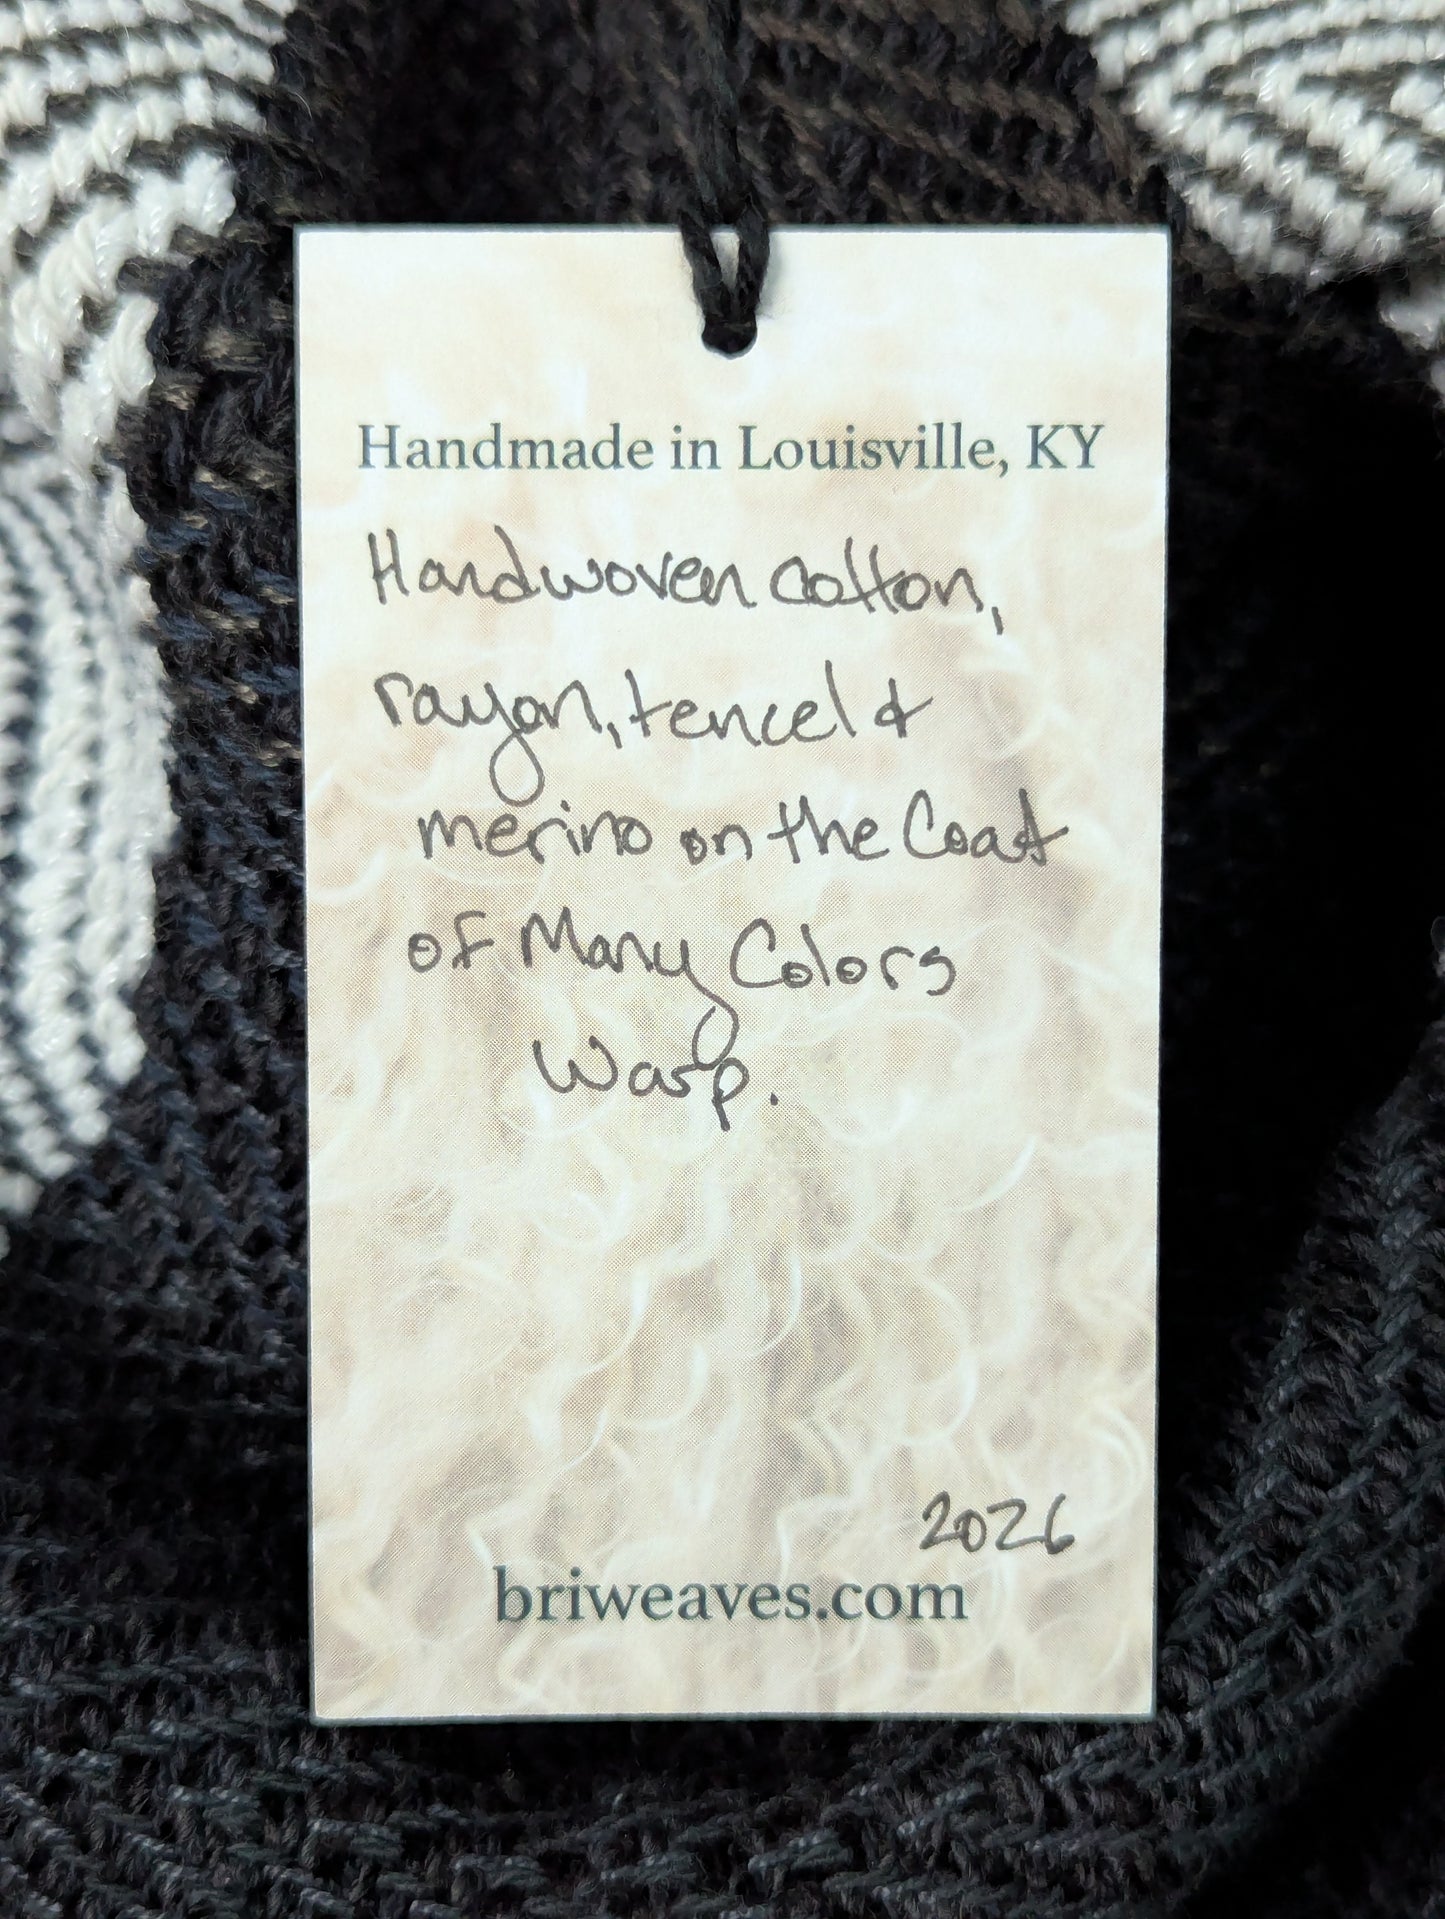 Handmade in Louisville, KY
Handwoven cotton,
rayon, tencel &
merino on the Coat
of Many Colors
Warp.
2026
briweaves.com